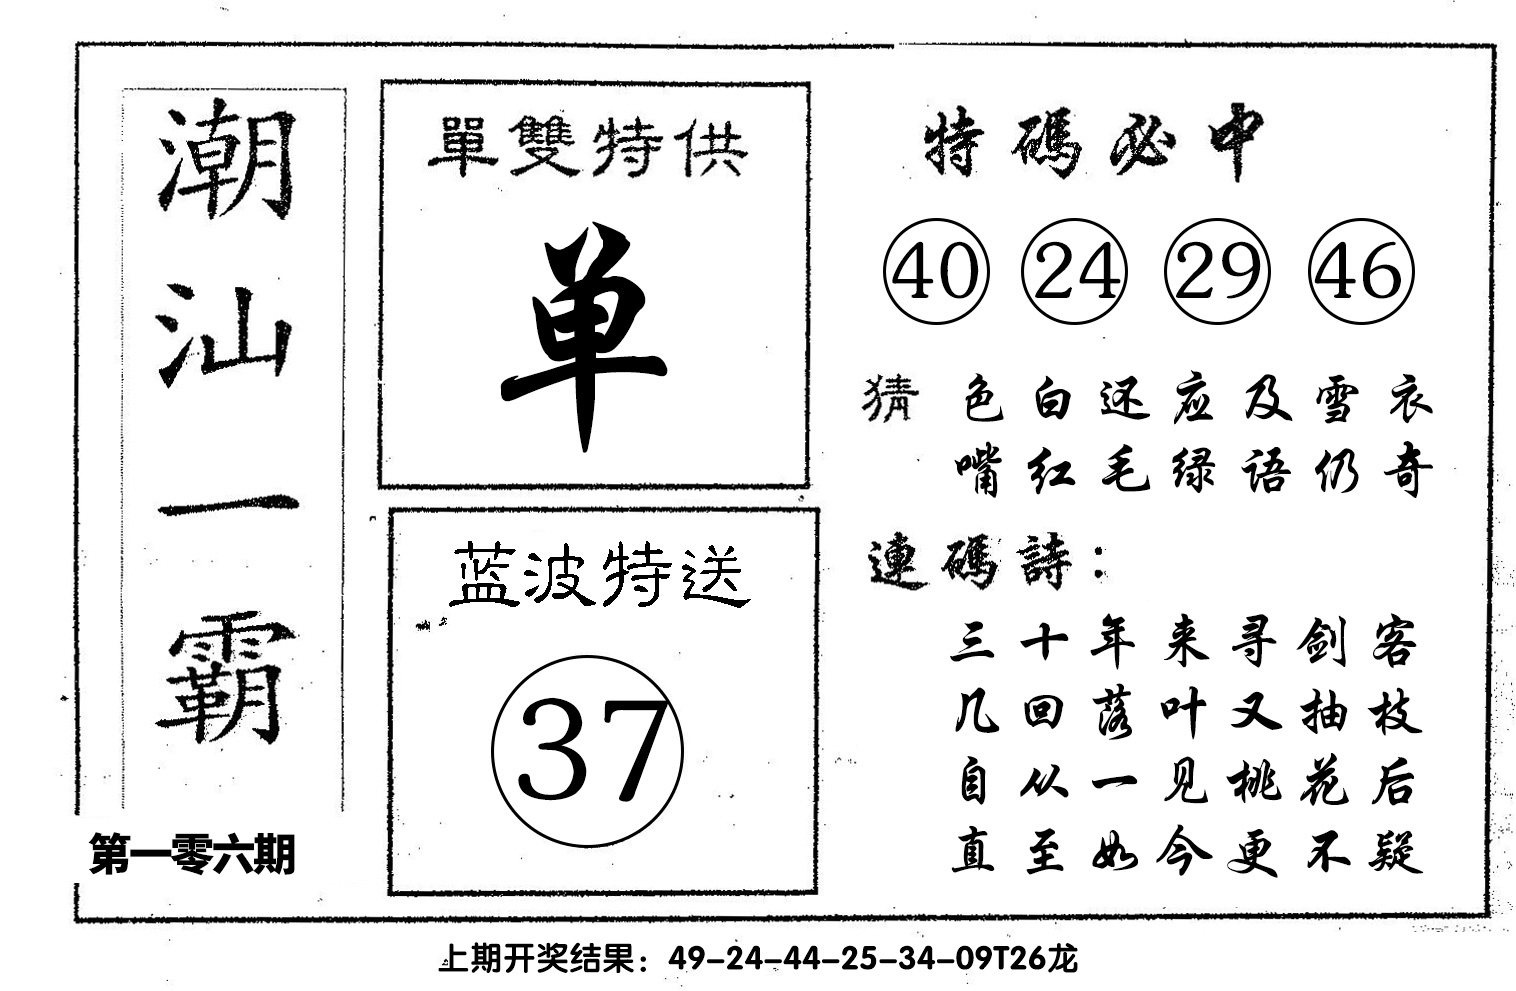 潮汕一霸
第一零六期
單雙特供
单
蓝波特送
37
特碼必中
40 24 29 46
猜 色白还应及雪衣
嘴红毛绿语仍奇
連碼詩：
三十年来寻剑客
几回落叶又抽枝
自从一见桃花后
直至如今更不疑
上期开奖结果：49-24-44-25-34-09T26龙